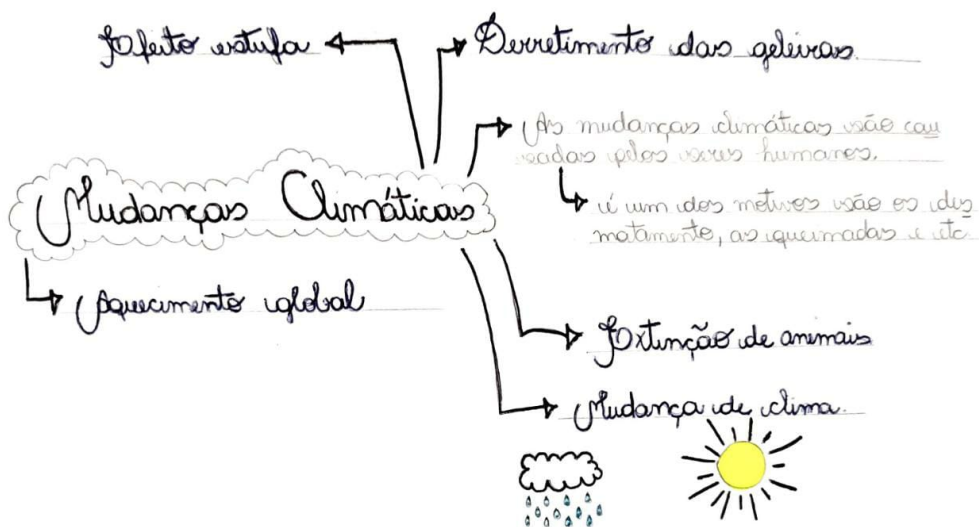 Efeito estufa
Derretimento das geleiras.
As mudanças climáticas são cau
sadas pelos seres humanos.
é um dos motivos são os des
matamento, as queimadas e etc.
Mudanças Climáticas
Aquecimento global
Extinção de animais
Mudança de clima.